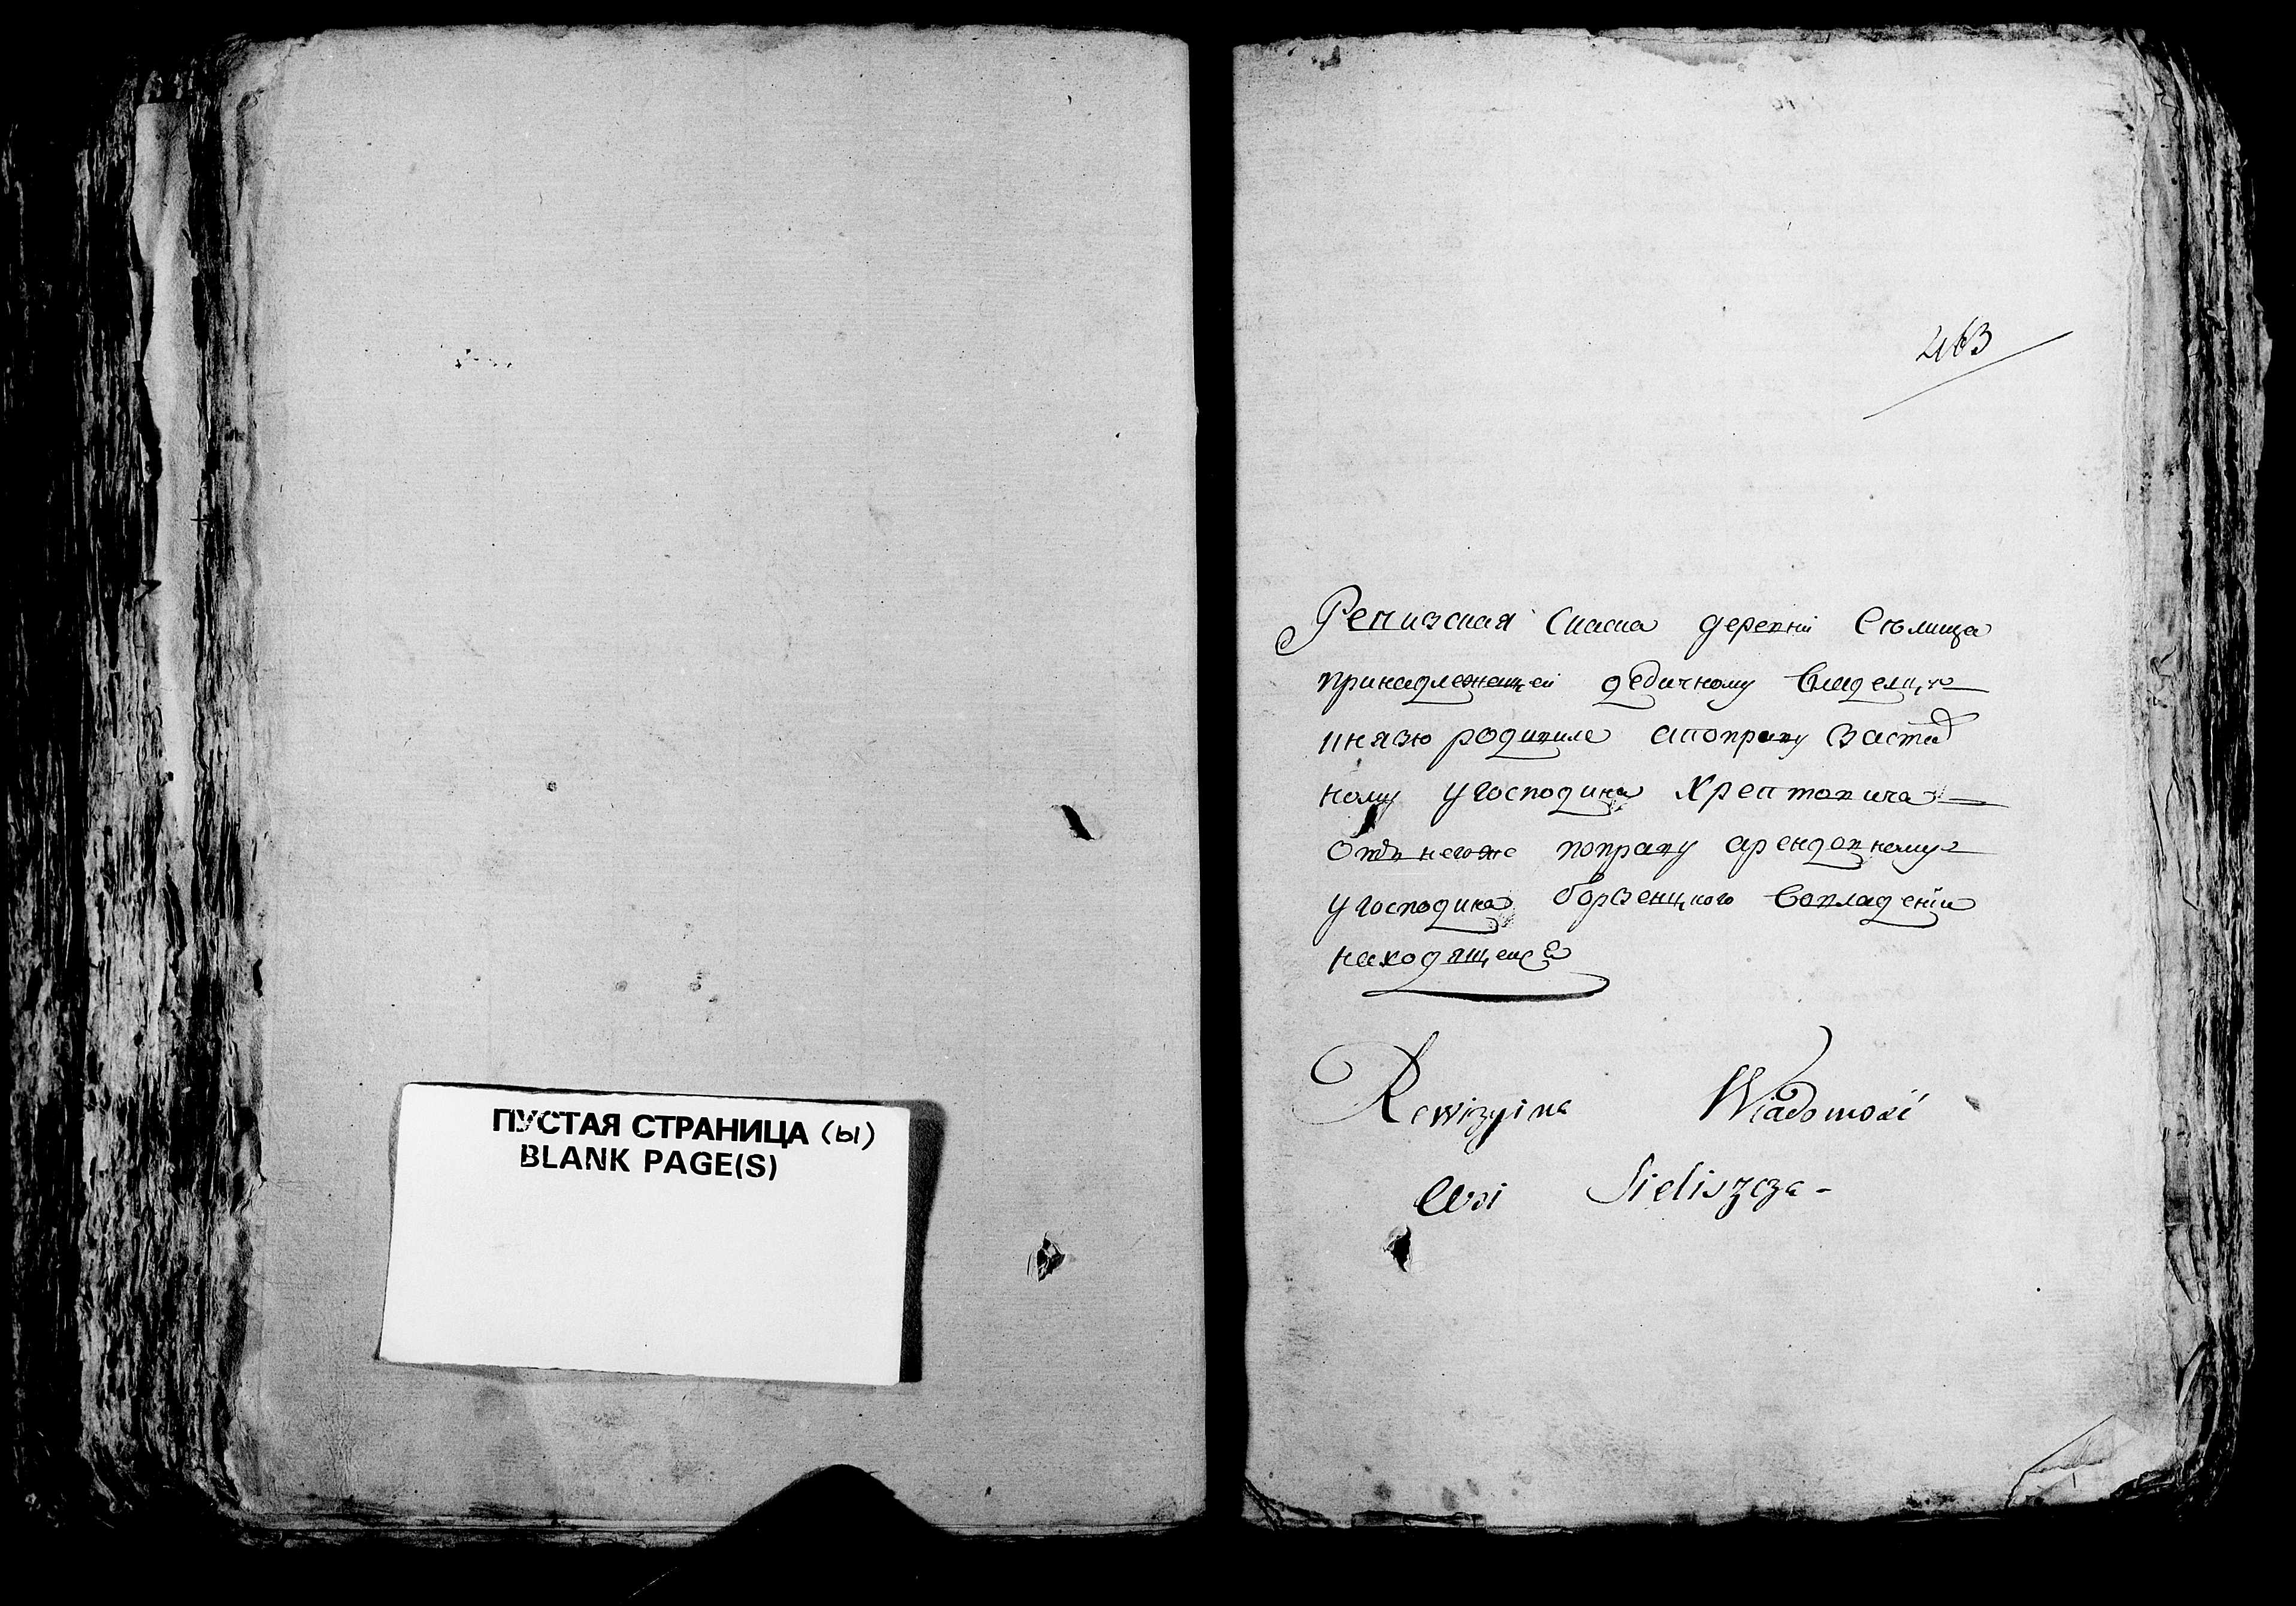 ПУСТАЯ СТРАНИЦА (ы)
BLANK PAGE(S)
463
Ревизская Скаска деревни Сѣлища
принадлежащей дедичному владельцу
князю родивиле апоправу застав
ному угосподина Хрептовича
отъ негоже поправу арендовному
угосподина борзенцкого вовладении
находящейся
Rewizyina Wiadomość
Wsi Sieliszcza -